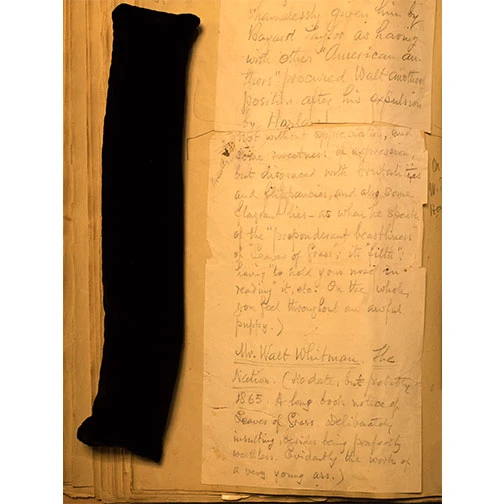 shamelessly given him by
Bayard Taylor as having
with other "American au-
thors" procured Walt another
position after his expulsion
by Harlan!
Not without appreciation, and
some sweetness of expression,
but disgraced with brutalities
and flippancies, and also some
flagrant lies — as when he speaks
of the "preponderant beastliness"
of "Leaves of Grass"; its "filth";
having "to hold your nose in
reading" it, etc. On the whole,
you feel throughout an awful
puppy.)
Mr. Walt Whitman. The
Nation. (No date, but probably
1865. A long book notice of
Leaves of Grass. Deliberately
insulting, besides being perfectly
worthless. Evidently the work of
a very young ass.)